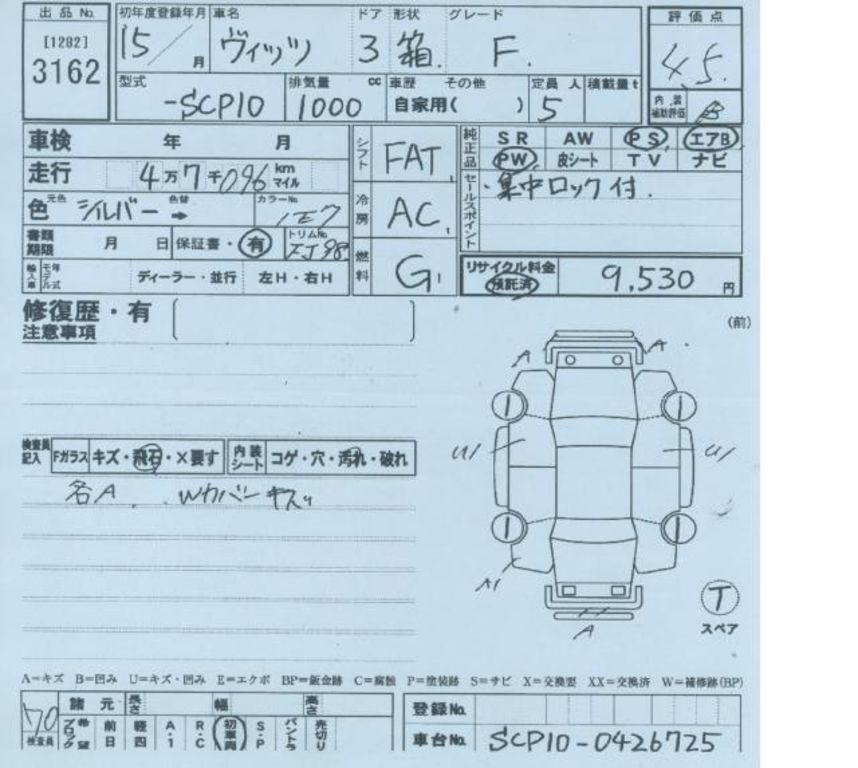 出品No. 初年度登録年月 車名 ドア 形状 グレード 評価点
[1282] 15/ 月 ヴィッツ 3 箱. F. 4.5
3162
型式 排気量 cc 車歴 その他 定員 人 積載量t 内装補助評価
-SCP10 1000 自家用( ) 5 B
車検 年 月 シフト FAT 純正品 SR AW PS エアB
PW 皮シート TV ナビ
走行 4万7千096 km マイル
セールスポイント ・集中ロック付.
色 元色 シルバー 色替 ➡ カラーNo. 1E7 冷房 AC
書類期限 月 日 保証書・有 トリムNo. 燃料 G
輸入車 モデル年式 ディーラー・並行 左H・右H
リサイクル料金 預託済 9,530 円
修復歴・有
注意事項
(前)
A A
検査員記入 Fガラス キズ・飛石・×要す 内装シート コゲ・穴・汚れ・破れ
U1 U1
各A. Wカバーキズ
A1
A
T
スペア
A=キズ B=凹み U=キズ・凹み E=エクボ BP=鈑金跡 C=腐蝕 P=塗装跡 S=サビ X=交換要 XX=交換済 W=補修跡(BP)
諸元 長さ 幅 高さ 登録No.
検査員 希望ブロック 前日 軽四 A・1 R・C 初車両 S・P バントラ 売切り
車台No. SCP10-0426725